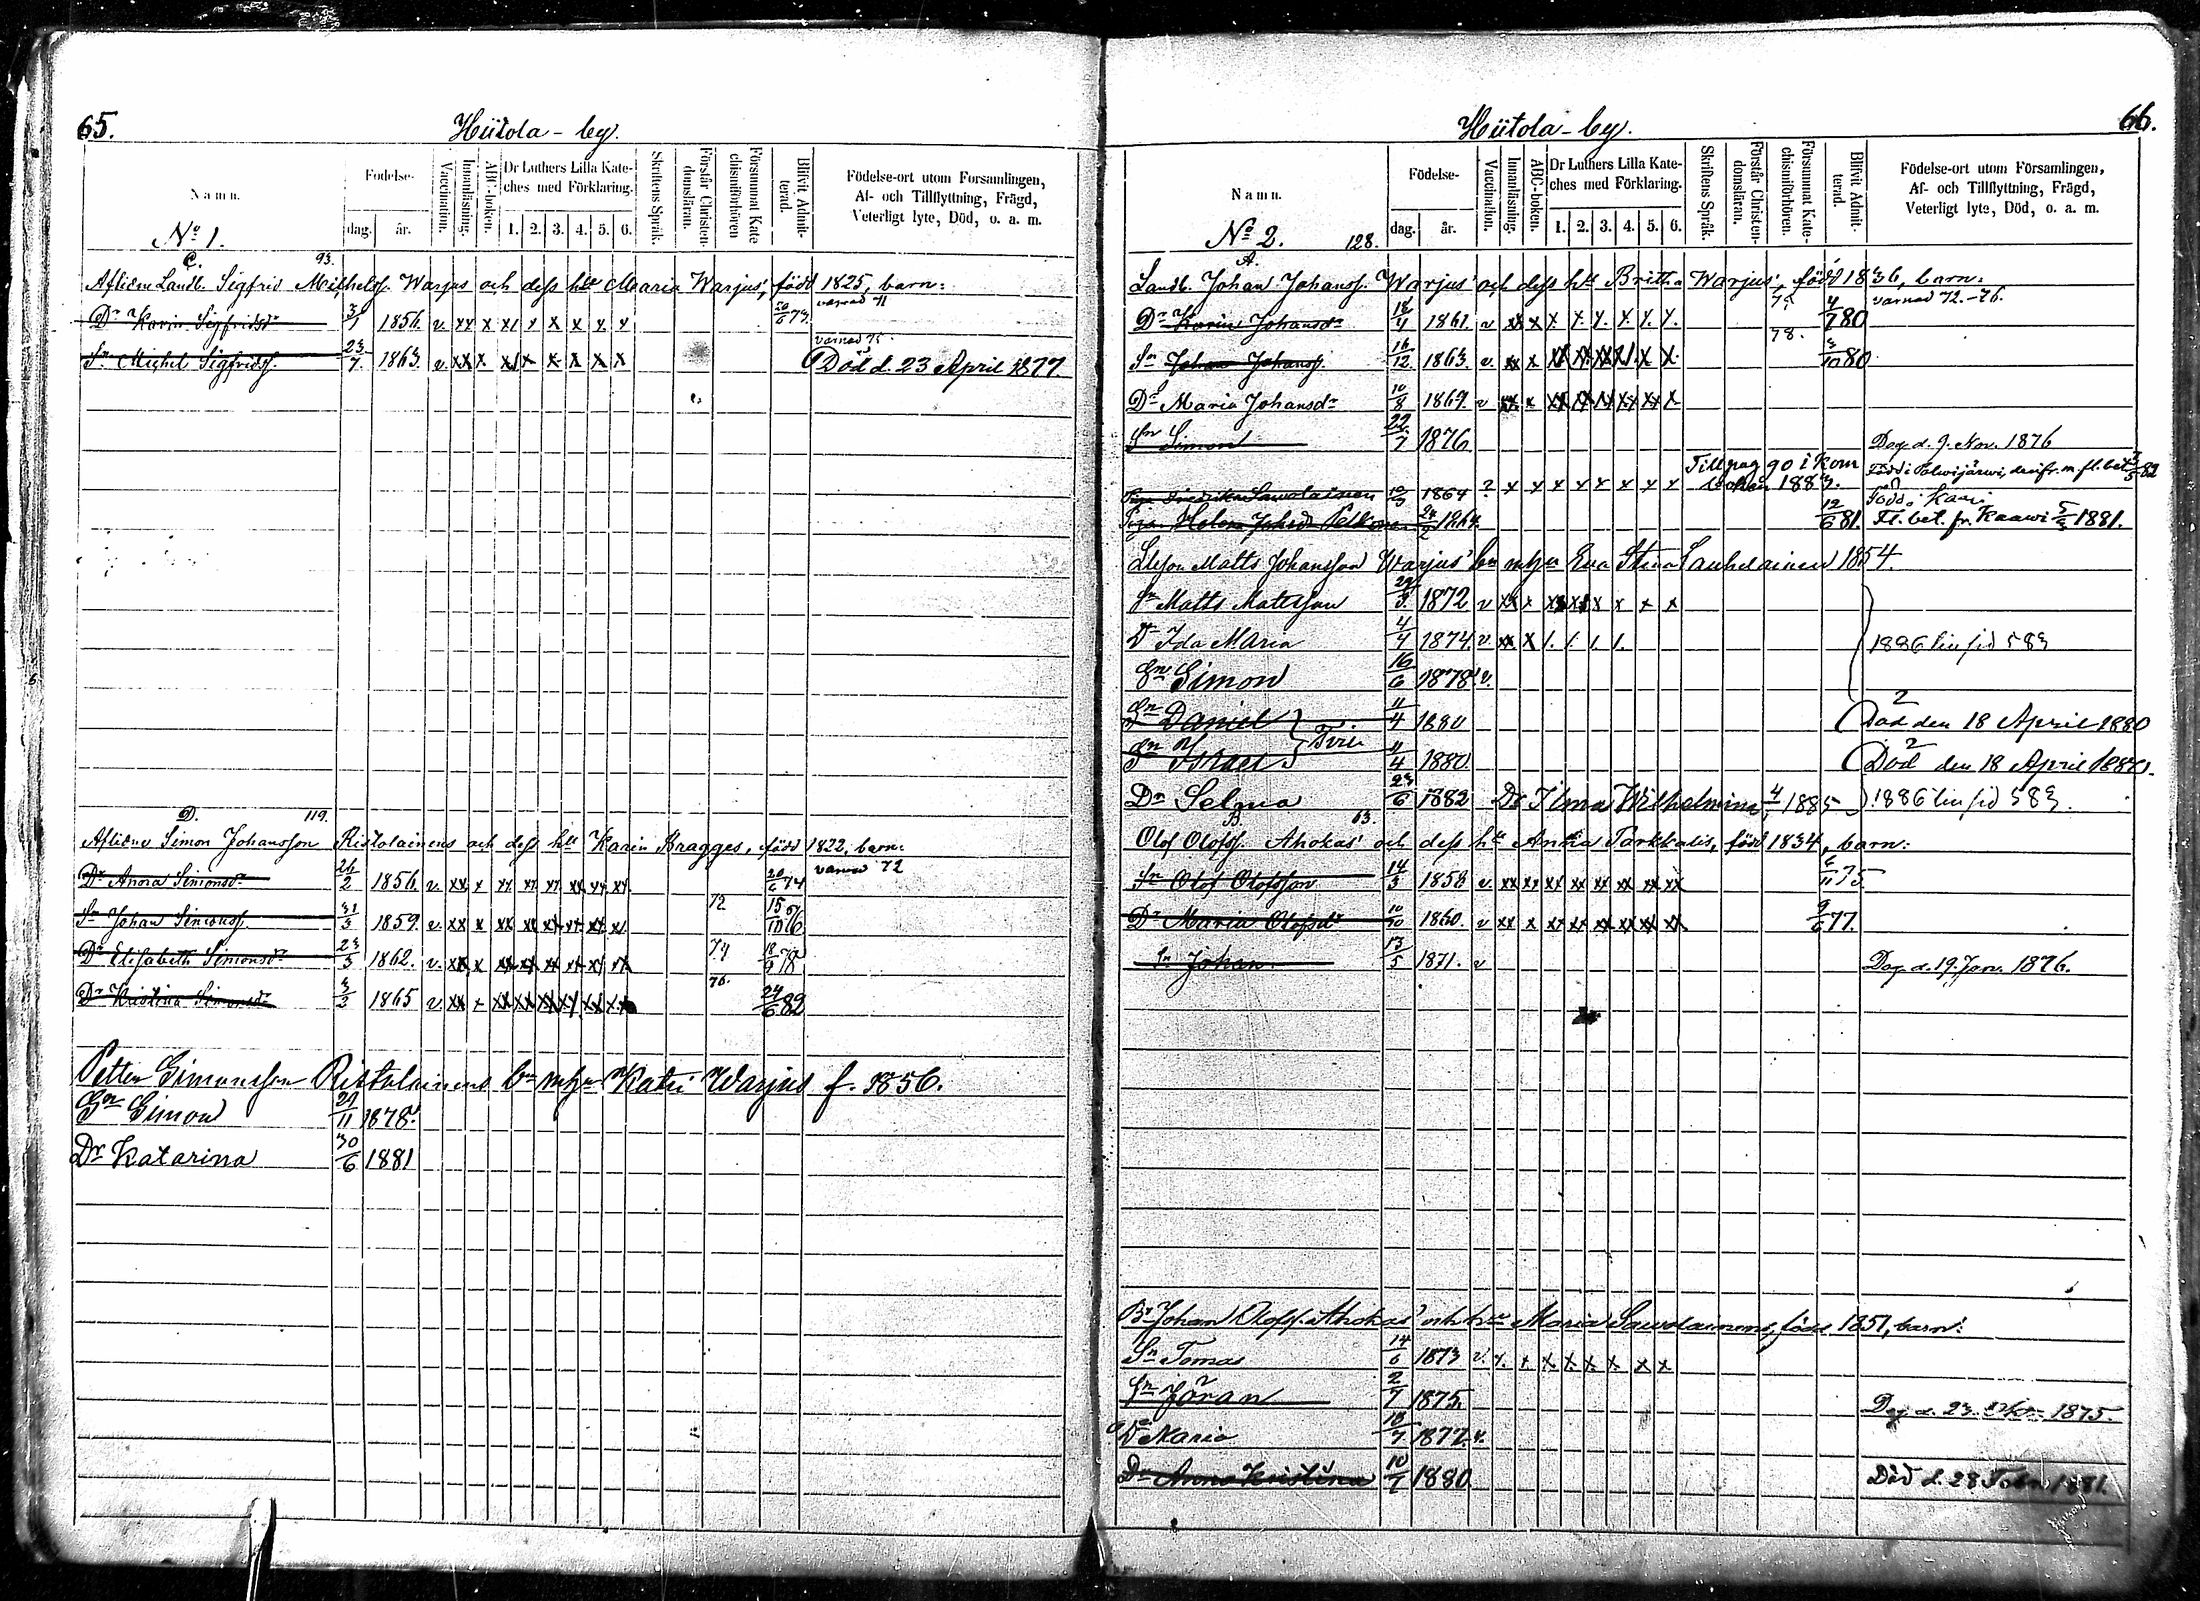 65.
Hiitola - by.
Namn.
Födelse-
dag.
år.
Vaccination.
Innanläsning.
ABC-boken.
Dr Luthers Lilla Kate-
ches med Förklaring.
1. 2. 3. 4. 5. 6.
Skriftens Språk.
Förstår Christen-
domsläran.
Försummat Kate
chismiförhören
Blifvit Admit-
terad.
Födelse-ort utom Forsamlingen,
Af- och Tillflyttning, Frägd,
Veterligt lyte, Död, o. a. m.
No 1.
C. 93.
Aflidne Landb. Sigfrid Michelss. Warjus och dess hu Maaria Warjus', född 1825, barn:
Dr Karin Sigfridsdr 1856. v. xx x x/ x x x x x varnad 71
Sn Michel Sigfridss. 23/7 1863. v. xx x x/ x x x x x varnad 75. Död d. 23 April 1877.
D. 119.
Aflidne Simon Johansson Ristolainens och dess hu Karin Bragges, född 1822, barn:
Dr Anna Simonsdr 26/2 1856. v. xx x xx xx xx xx xx xx 20/6 74 varnad 72
Sn Johan Simonss. 31/3 1859. v. xx x xx xx xx xx xx x/ 72 15/10 76
Dr Elisabeth Simonsdr 23/5 1862. v. xx x xx xx xx xx x/ xx 74 18/9 78
Dr Kristina Simonsdr 3/3 1865 v. xx x xx xx xx x/ xx xx 76. 24/6 82
Petter Simonsson Ristolainens bn m hu Katri Warjus f. 1856.
Son Simon 29/11 1878.
Dr Katarina 30/6 1881
66.
Hiitola - by.
Namn.
Födelse-
dag.
år.
Vaccination.
Innanläsning.
ABC-boken.
Dr Luthers Lilla Kate-
ches med Förklaring.
1. 2. 3. 4. 5. 6.
Skriftens Språk.
Förstår Christen-
domsläran.
Försummat Kate-
chismiförhören.
Blifvit Admit-
terad.
Födelse-ort utom Församlingen,
Af- och Tillflyttning, Frägd,
Veterligt lyte, Död, o. a. m.
No 2. 128.
A.
Landb. Johan Johanss. Warjus' och dess hu Britha Warjus', född 1836, barn:
Dr Karin Johansdr 1861. v xx x x. x. x. x. x. x. 4/7 80 varnad 72.-76.
Sn Johan Johanss. 16/12 1863. v. xx x xx xx xx x/. x x. 78. 3/10 80
Dr Maria Johansdr 10/8 1869. v xx x xx xx xx xx xx x
Sn Simon 22/7 1876 Dog d. 9. Nov. 1876
Sawolainen 1864 ? x x x x x x x x
Helena 24/2 1864. 12/6 81. Fl. bet. fr. Kaawi 1881.
Matts Johansson Warjus' bn m hu Eva Stina Lauhelainen 1854.
Sn Matts Mattsson 29/3 1872 v xx x xx xx x x x x
Dr Ida Maria 4/4 1874. v. xx x /. /. /. /. 1886 583
Sn Simon 16/6 1878. v.
Sn Daniel 11/4 1880 Död den 18 April 1880
Sn Israel 11/4 1880. Död den 18 April 1880.
Dr Selma 23/6 1882 Dr Ilma Wilhelmina 4/ 1885 1886 583.
B. 63.
Olof Olofss. Ahokas' och dess hu Anna Tarkkalis, född 1834, barn:
Sn Olof Olofsson 14/3 1858 v. xx xx xx xx xx xx xx xx 6/11 75.
Dr Maria Olofsdr 10/10 1860. v xx x xx xx xx xx xx xx 9/6 77.
Sn Johan. 13/5 1871. v Dog d. 19. Jan. 1876.
Br Johan Olofss. Ahokas' och hu Maria Sawolainens, född 1851, barn:
Sn Tomas 14/6 1873 v. x. x x. x. x. x. x x
Sn Jöran 2/7 1875. Dog d. 23. 1875.
Dr Maria 18/7 1877. v.
Dr Anna Kristina 10/7 1880. Död d. 28 1881.